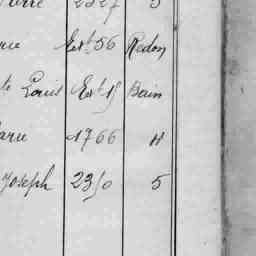 ierre 2327 5
rie Ext. 56 Redon
te Louis Ext. 15 Bain
arie 1766 4
Joseph 2350 5